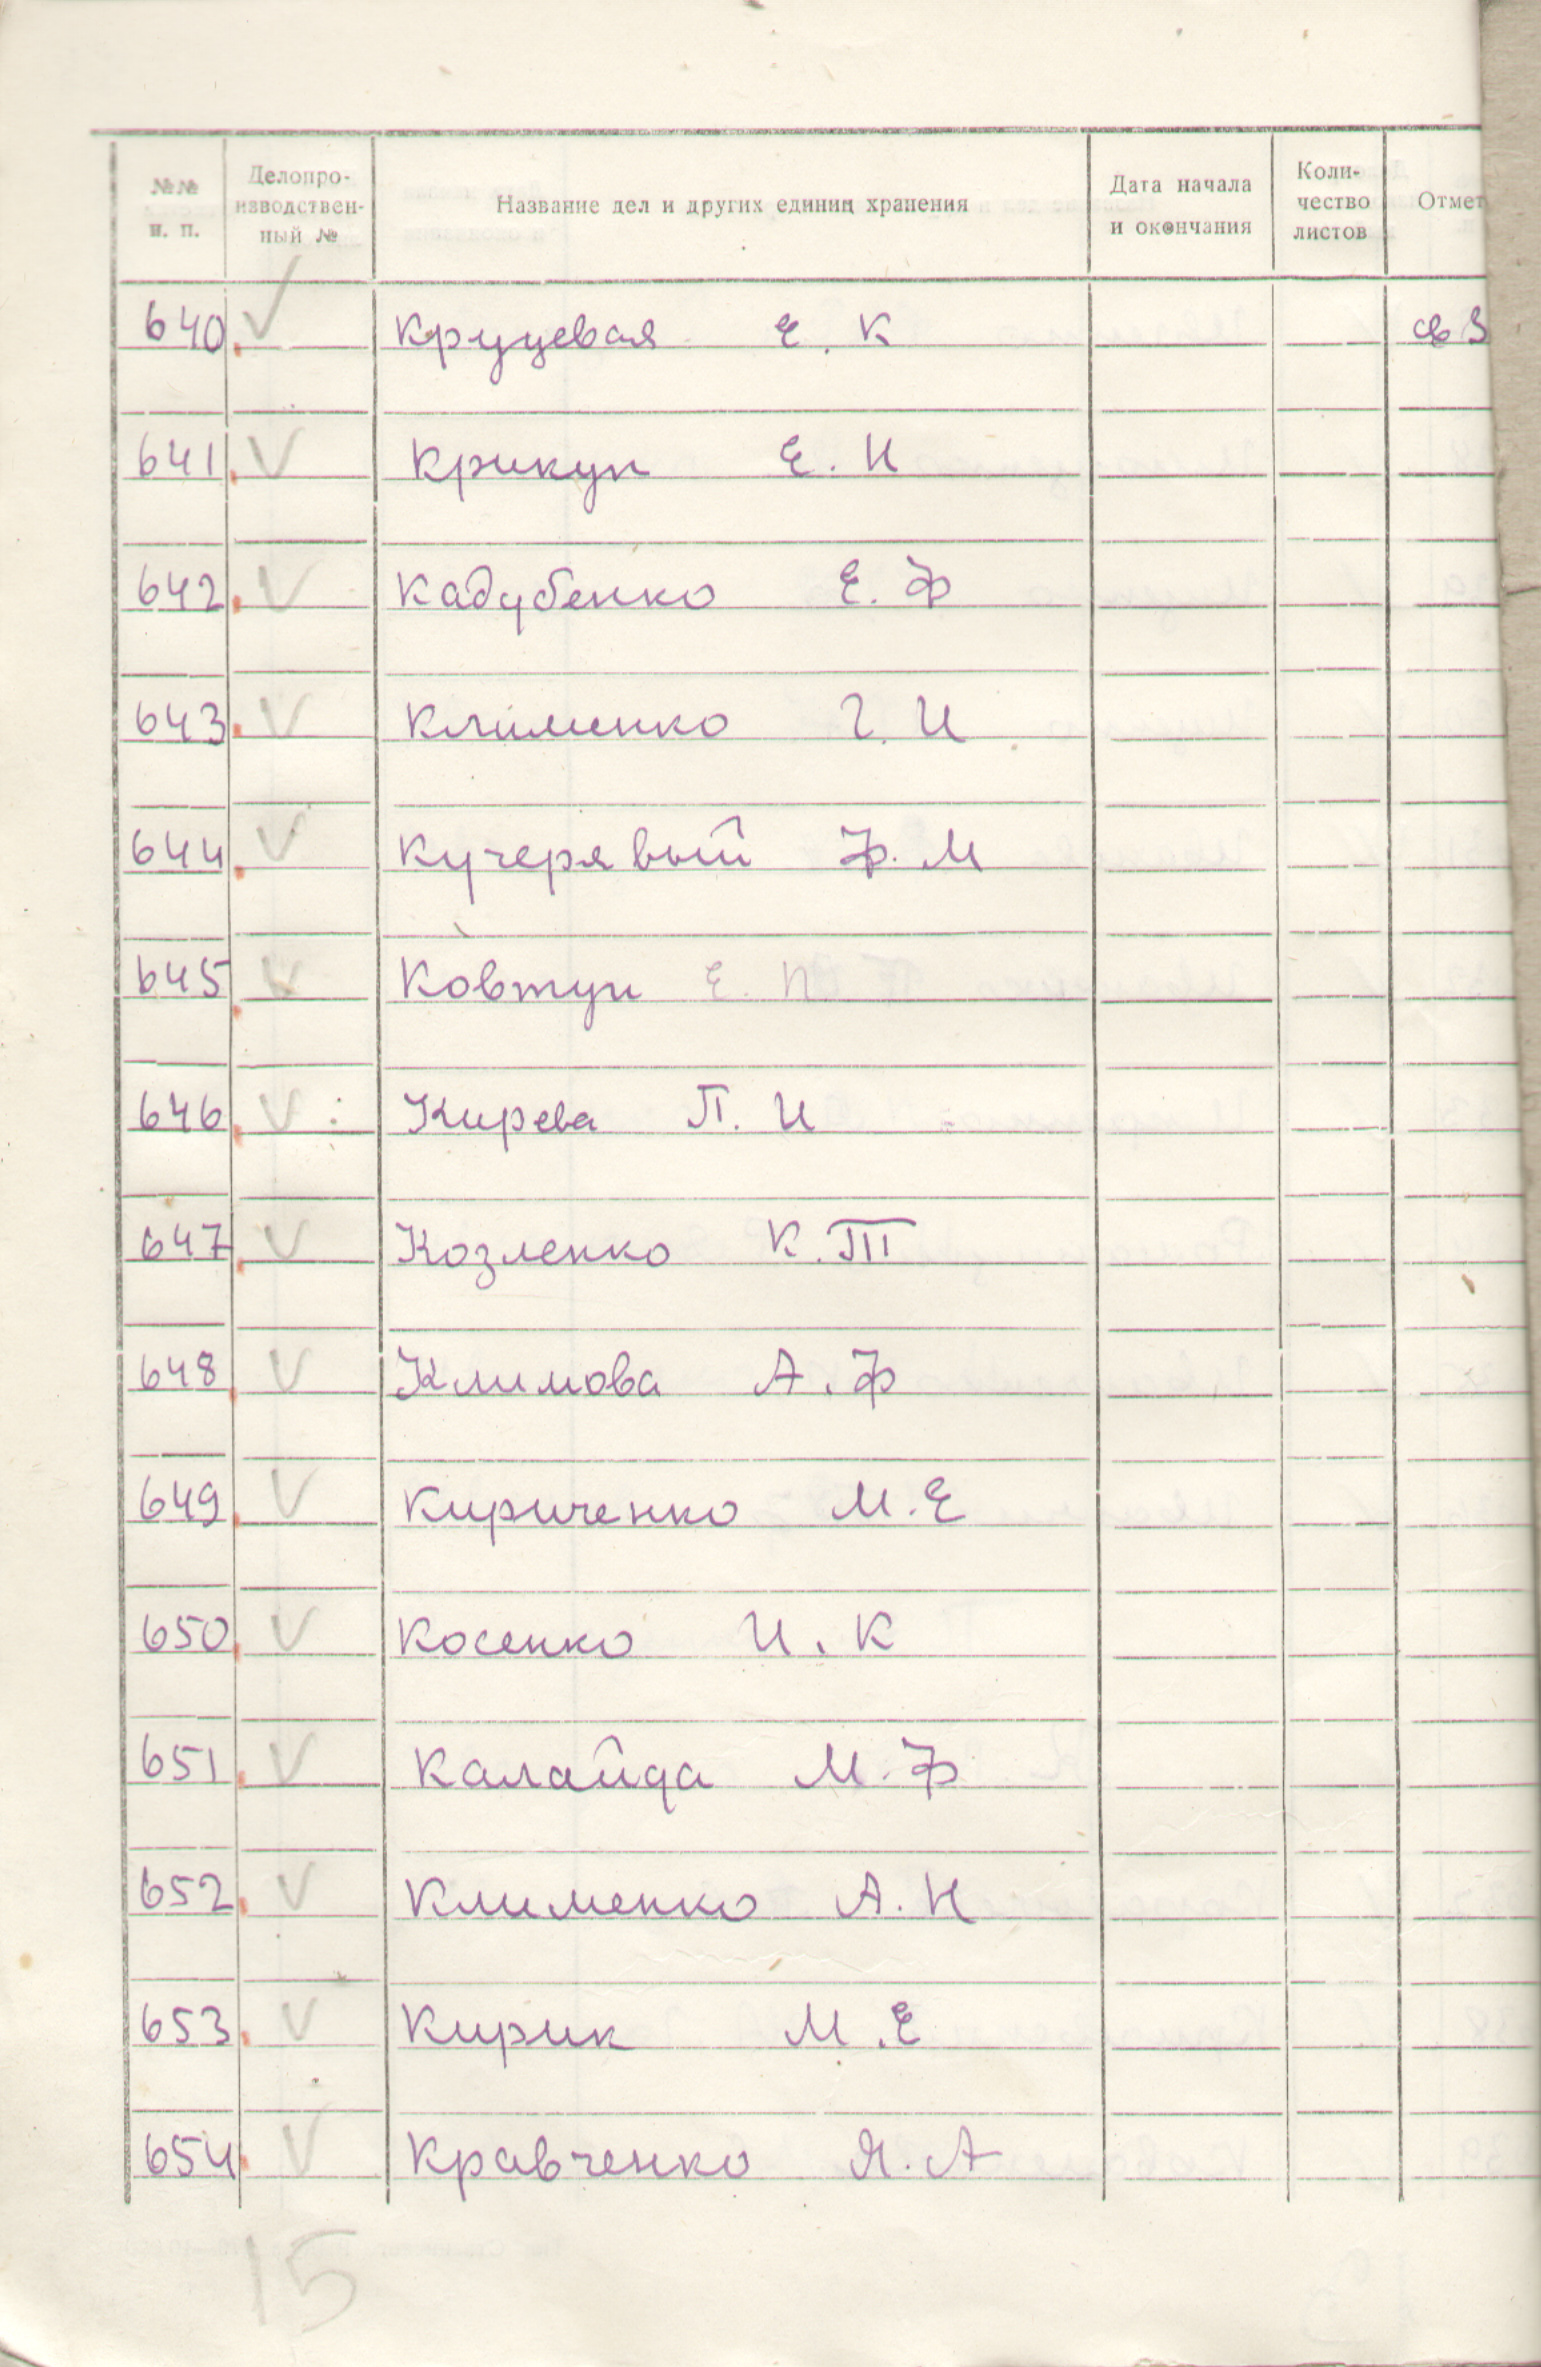 №№ п. п. Делопро- изводствен- ный № Название дел и других единиц хранения Дата начала и окончания Коли- чество листов Отмет
640 Круцевая Е. К св 3
641 Крикун Е. И
642 Кадубенко Е. Ф
643 Клименко Г. И
644 Кучерявый Ф. М
645 Ковтун Е. П
646 Кирева П. И
647 Козленко К. Т
648 Климова А. Ф
649 Кириченко М. Е
650 Косенко И. К
651 Калайда М. Ф
652 Клименко А. Н
653 Кирик М. Е
654 Кравченко Я. А
15